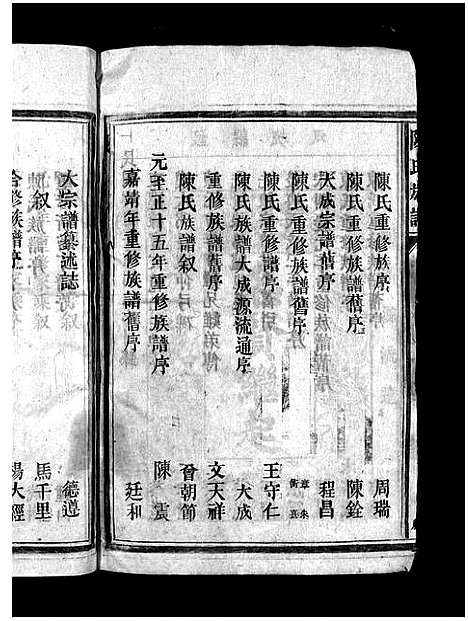 陳氏族譜
陳氏重修族序 周瑞
陳氏重修族譜舊序 陳銓
大成宗譜舊序 程昌
陳氏重修族譜舊序
陳氏重修譜序 王守仁
陳氏族譜大成源流通序 大成
重修族譜序 文天祥
陳氏族譜叙 晉朝節
元至正十五年重修族譜序 陳震
嘉靖年重修族譜舊序 廷和
大宗譜纂述誌 德遵
叙 馬千里
合修族譜序 楊大經